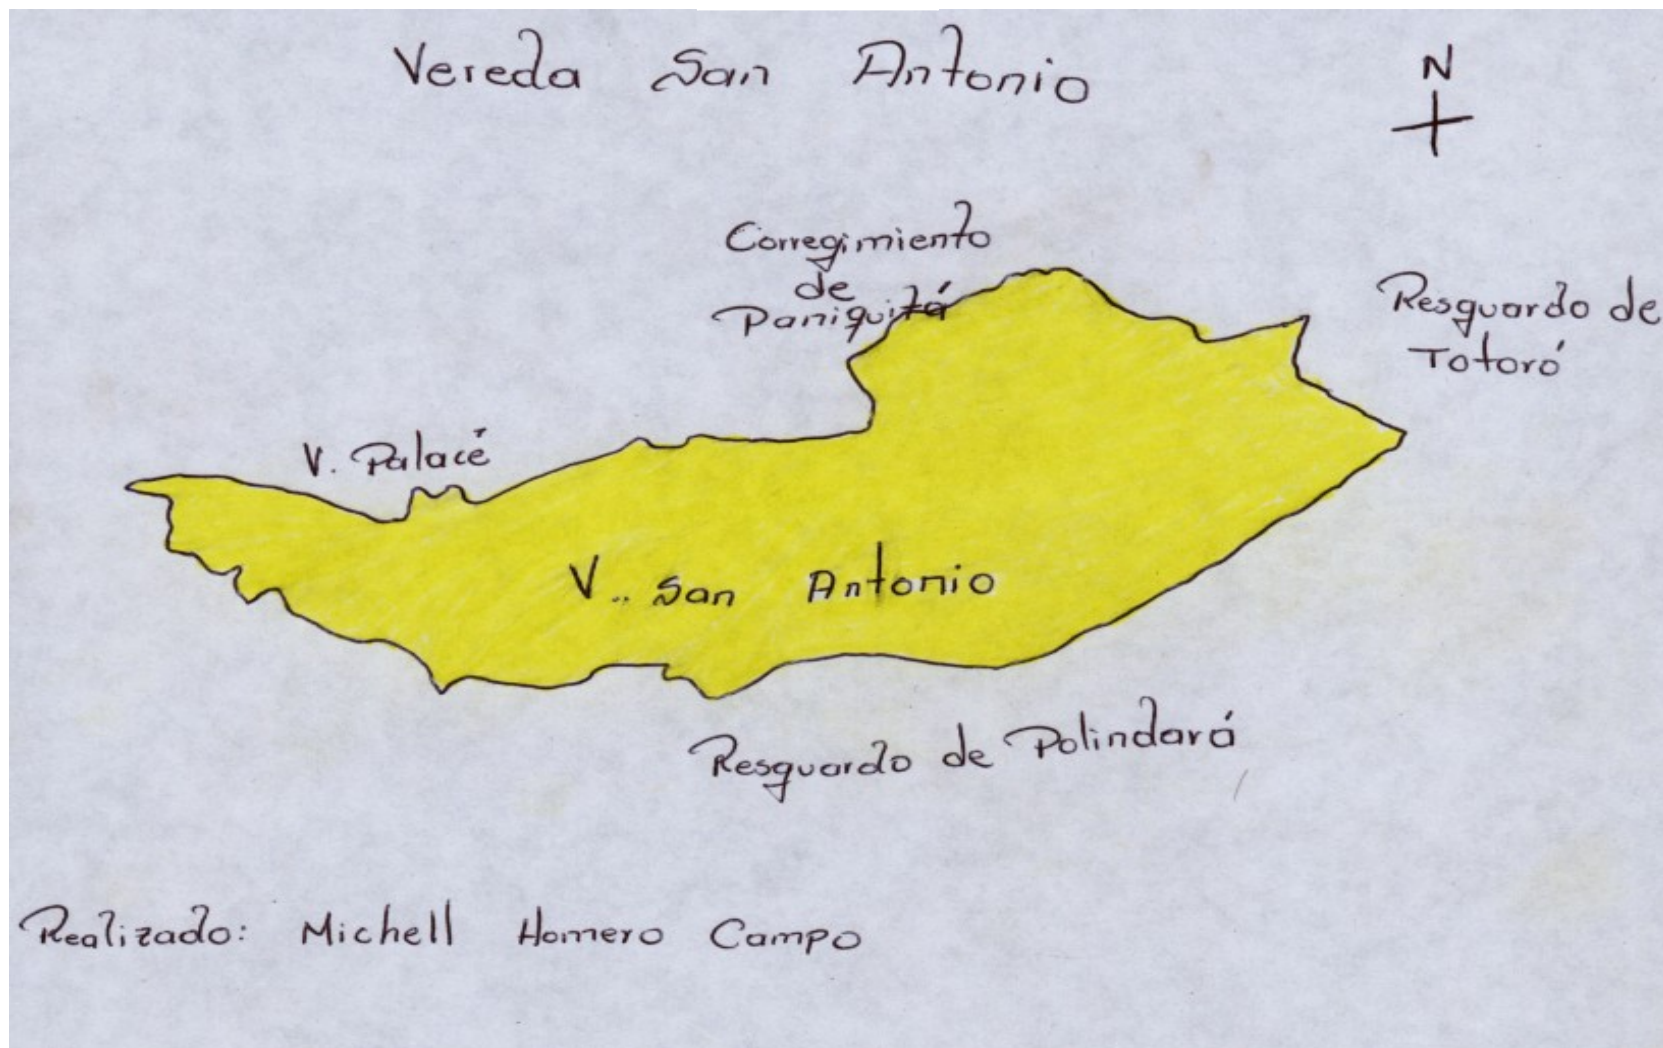 Vereda San Antonio
N
Corregimiento
de
Paniquitá
Resguardo de
Totoró
V. Palacé
V.. San Antonio
Resguardo de Polindará
Realizado: Michell Homero Campo